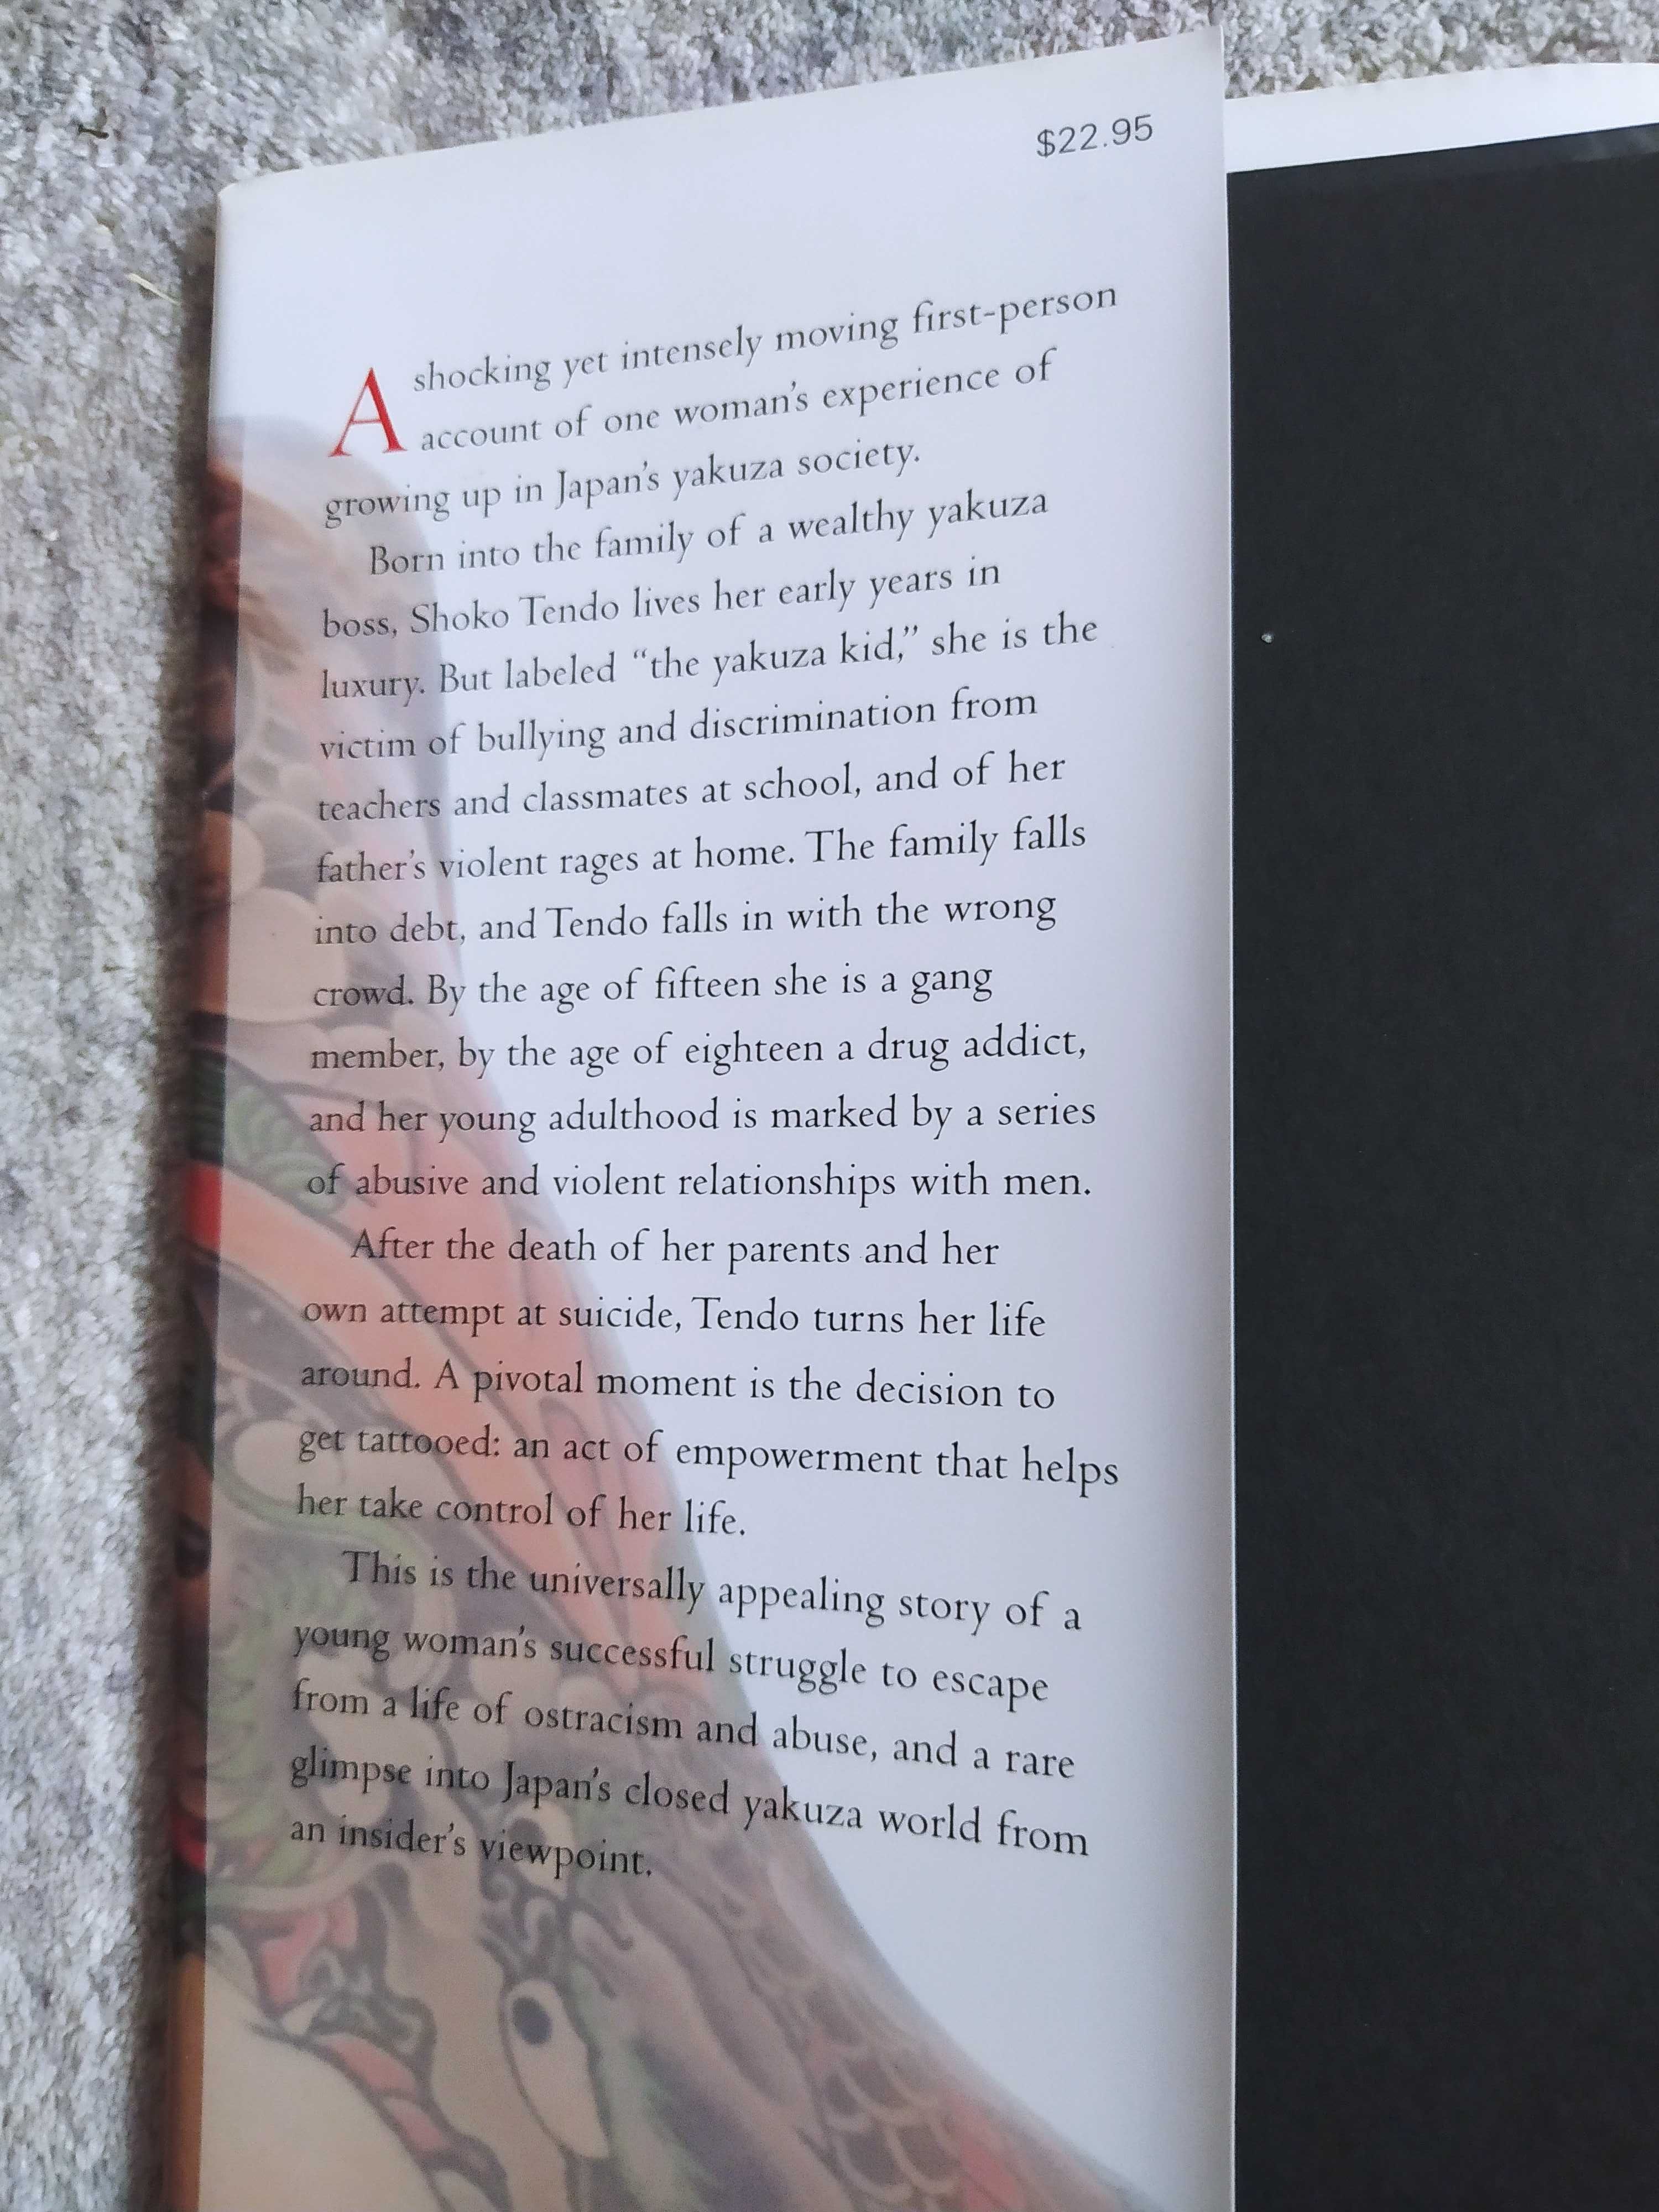 $22.95
A shocking yet intensely moving first-person
account of one woman's experience of
growing up in Japan's yakuza society.
Born into the family of a wealthy yakuza
boss, Shoko Tendo lives her early years in
luxury. But labeled “the yakuza kid,” she is the
victim of bullying and discrimination from
teachers and classmates at school, and of her
father's violent rages at home. The family falls
into debt, and Tendo falls in with the wrong
crowd. By the age of fifteen she is a gang
member, by the age of eighteen a drug addict,
and her young adulthood is marked by a series
of abusive and violent relationships with men.
After the death of her parents and her
own attempt at suicide, Tendo turns her life
around. A pivotal moment is the decision to
get tattooed: an act of empowerment that helps
her take control of her life.
This is the universally appealing story of a
young woman's successful struggle to escape
from a life of ostracism and abuse, and a rare
glimpse into Japan's closed yakuza world from
an insider's viewpoint.